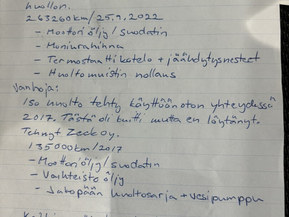 huollon.
263260km/25.9.2022
- Moottoriöljy/suodatin
- Moniurahihna
- Termostaattikotelo + jäähdytysnesteet
- Huoltomuistin nollaus
Vanhoja:
Iso huolto tehty käyttöönoton yhteydessä
2017. Tästä oli kuitti mutta en löytänyt.
Tehnyt Zeck Oy.
135000km/2017
- Moottoriöljy/suodatin
- Vaihteistoöljy
- Jakopään huoltosarja + vesipumppu